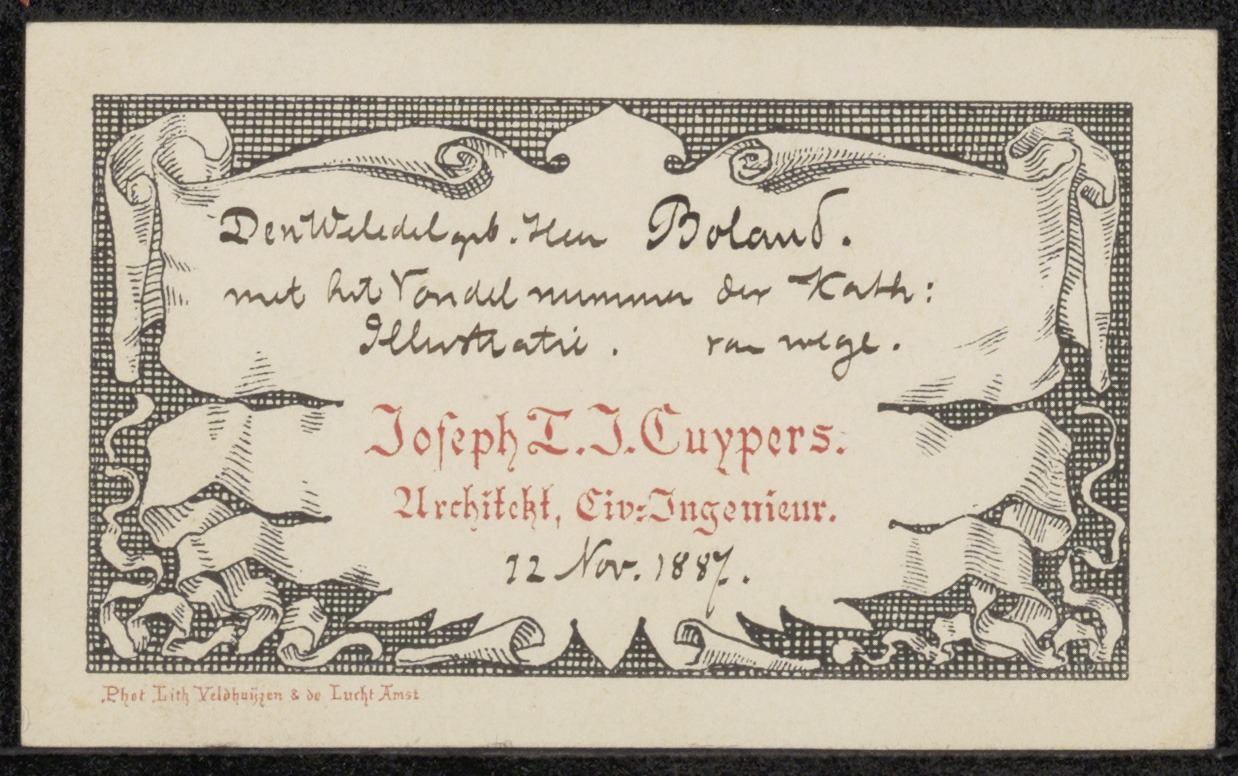 Den Weledelgeb. Heer Boland.
met het Vondel nummer der Kath:
Illustratie. van wege.
Joseph T. J. Cuypers.
Architekt, Civ:Ingenieur.
12 Nov. 1887.
Phot Lith Veldhuijzen & de Lucht Amst